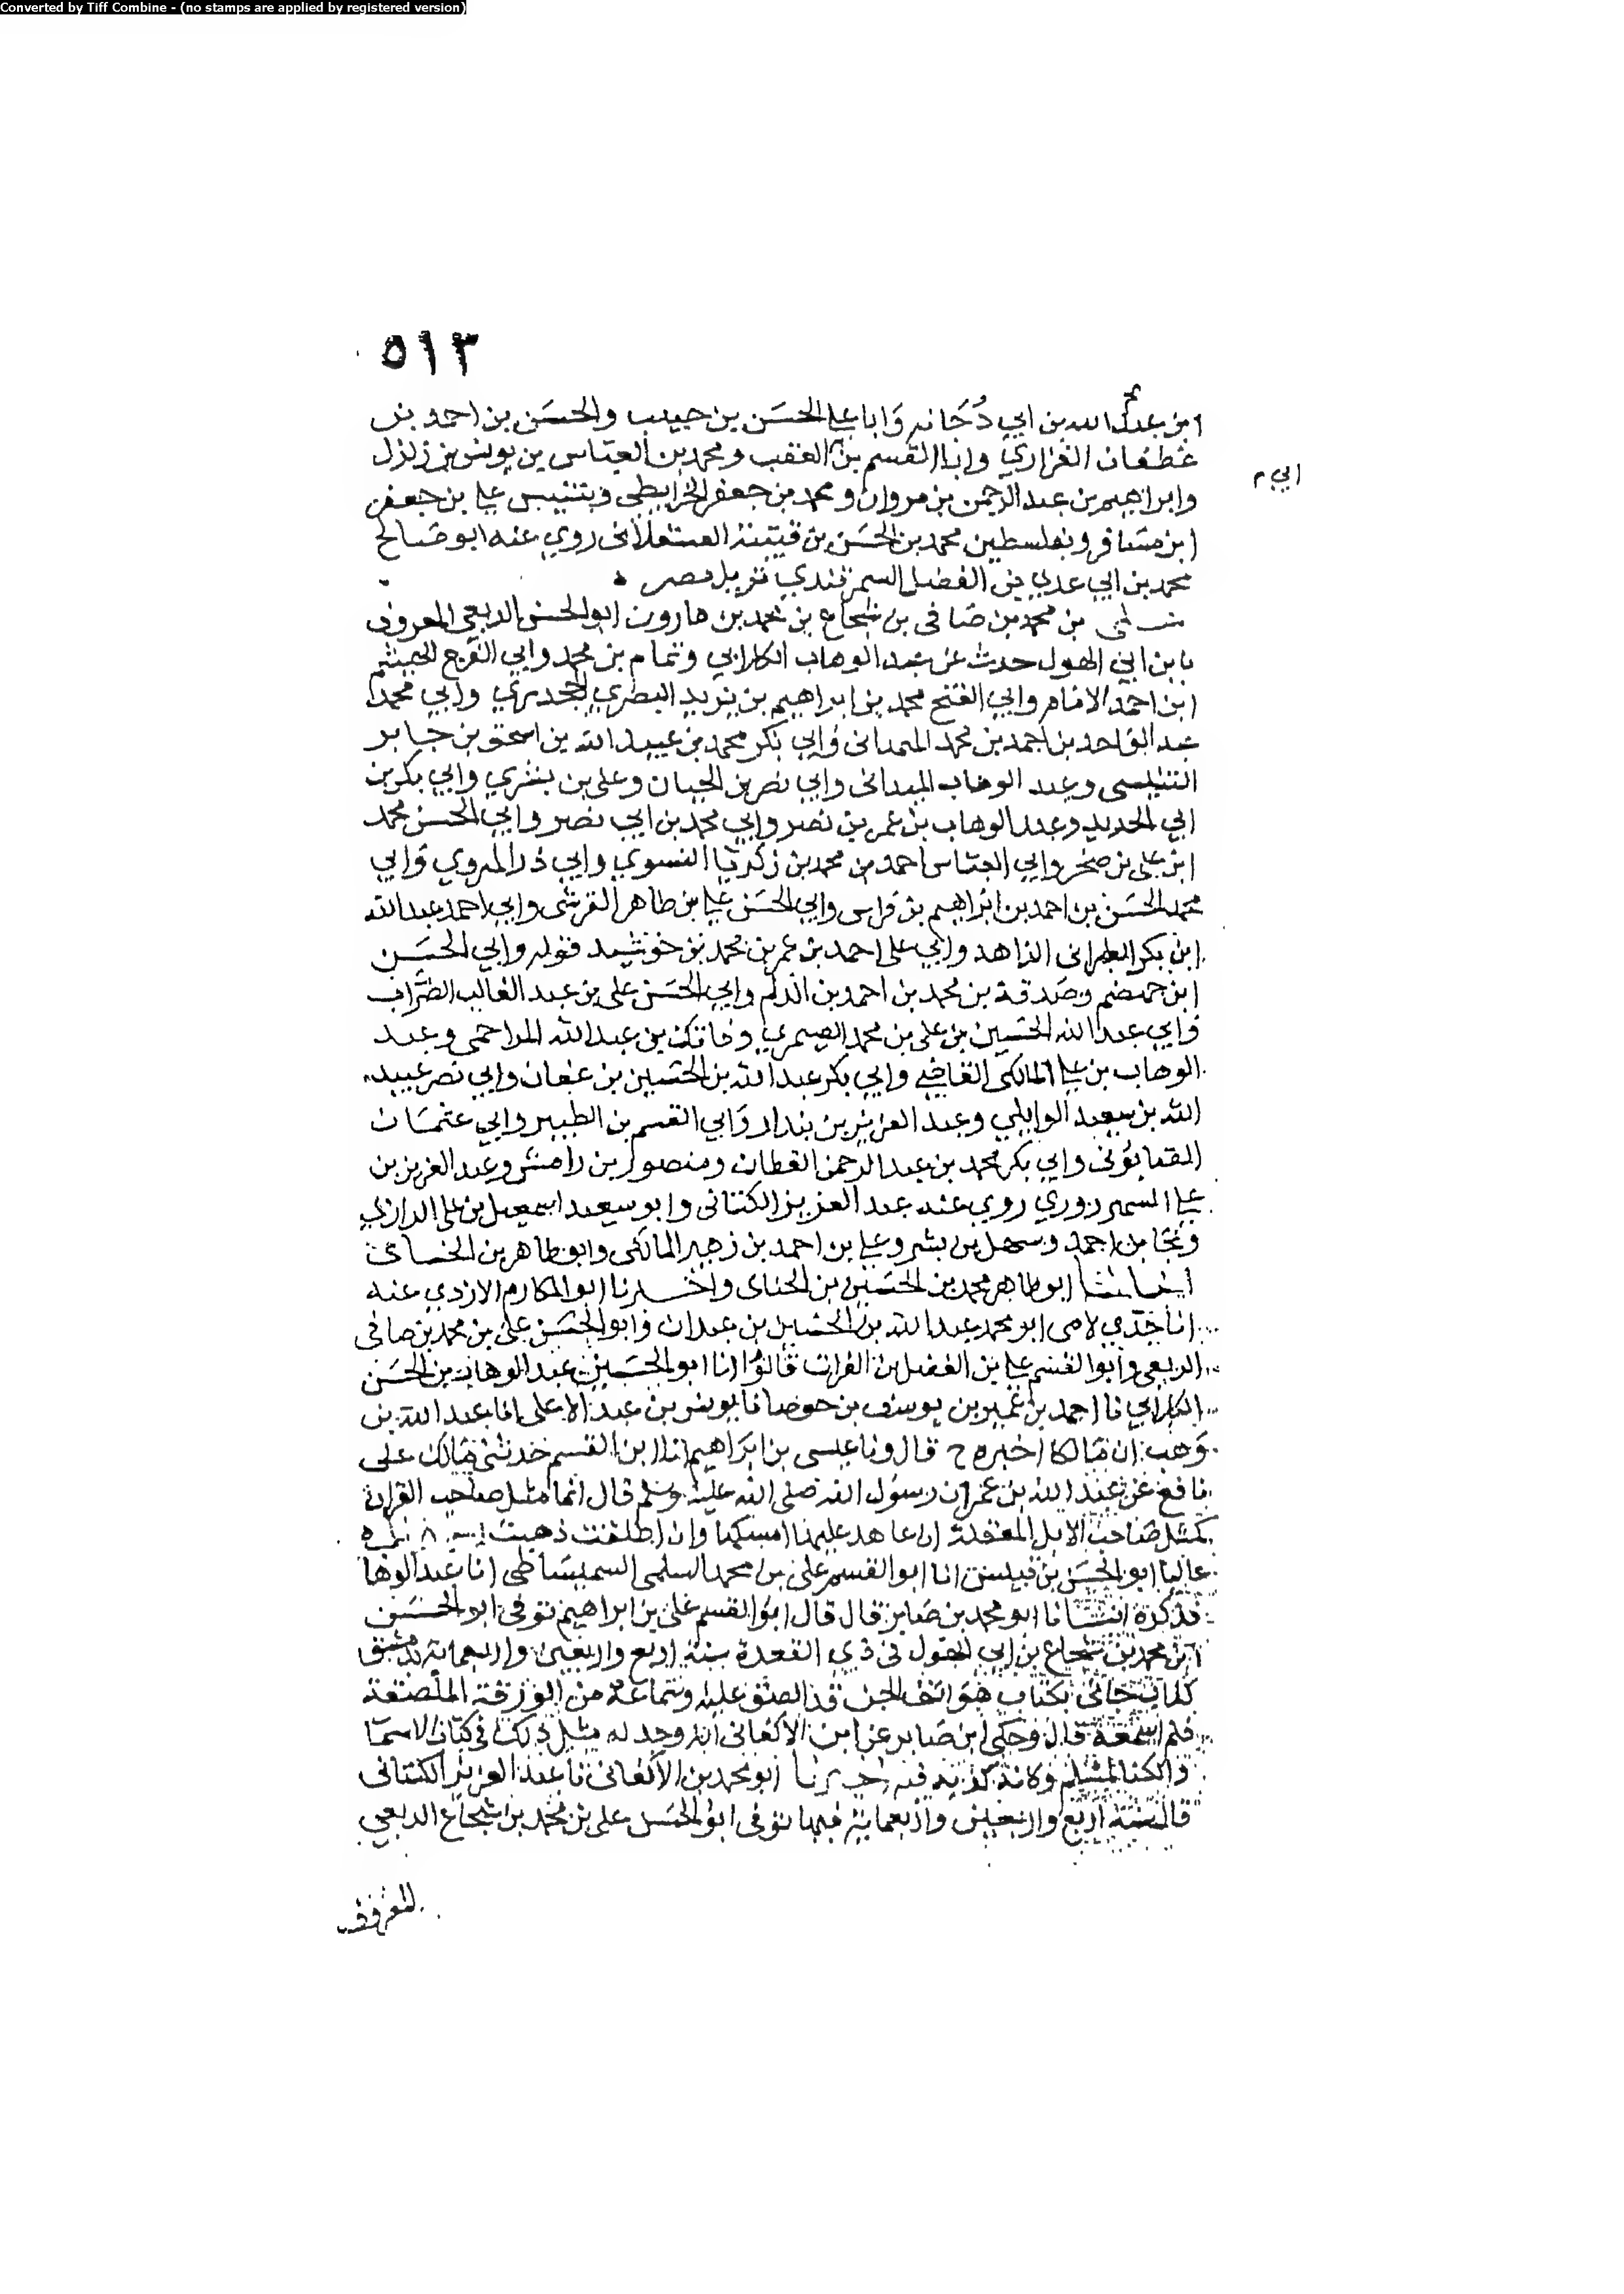 Converted by Tiff Combine - (no stamps are applied by registered version)
٥١٣
ابن عبد الله بن ابي دُجَانه وَابا علي الحسَن بن حبيب والحسَن بن احمد بن
غطفان الفزاري وابا القسم بن العقب ومحمد بن العباس بن يونس بن زلزل
ابي م
وابراهيم بن عبد الرحمن بن مروان ومحمد بن جعفر الخرايطي وبتنيس علي بن جعفر
ابن مسَافر وبفلسطين محمد بن الحسَن بن قتيبة العسقلانى روي عنه ابو صَالح
محمد بن ابي عدي بن الفضل السمرقندي نزيل مصر
علي بن محمد بن صَافى بن شجاع بن محمد بن هارون ابو الحسن الربعي المعروف
بابن ابي الهول حدث عن عبد الوهاب الكلابي وتمام بن محمد وابي الفرج الهيثم
ابن احمد الامام وابي الفتح محمد بن ابراهيم بن يزيد البصري الجحدري وابي محمد
عبد الواحد بن احمد بن محمد الهمدانى وابي بكر محمد بن عبيد الله بن اسحق بن جابر
التنيسى وعبد الوهاب الميدانى وابي نصر بن الجبان وعلى بن بشري وابي بكر بن
ابي الحديد وعبد الوهاب بن عمر بن نصر وابي محمد بن ابي نصر وابي الحسن محمد
ابن على بن صخر وابي العباس احمد بن محمد بن زكريا النسوي وابي ذر الهروي وابي
محمد الحسَن بن احمد بن ابراهيم بن فراس وابي الحسَن علي بن طاهر القرشى وابي احمد عبد الله
ابن بكر الطبرانى الزاهد وابي على احمد بن عمر بن محمد بن خرشيد قوله وابي الحسَن
ابن جهضم وصَدقة بن محمد بن احمد بن الدلم وابي الحسَن على بن عبد الغالب الضراب
وابي عبد الله الحسَين بن على بن محمد الصيمري وفاتك بن عبد الله المزاحمى وعبد
الوهاب بن علي المالكى القاضي وابي بكر عبد الله بن الحسَين بن عفان وابي نصر عبيد
الله بن سعيد الوايلي وعبد العزيز بن بندار وَابي القسم بن الطبيز وابي عثمَان
الصَابونى وابي بكر محمد بن عبد الرحمن القطان ومنصور بن رامش وعبد العزيز بن
علي السهرزوري روي عنه عبد العزيز الكتانى وابو سعيد اسمعيل بن على الرازي
ونجا بن احمد وسهل بن بشر وعلي بن احمد بن زهير المالكى وابو طاهر بن الحنائ
انبانا ابو طاهر محمد بن الحسَين بن الحنائ واخبرنا ابو المكارم الازدي عنه
انا جَدّي لامى ابو محمد عبد الله بن الحسَين بن عبدان وابو الحسَن على بن محمد بن صافى
الربعى وابو القسم علي بن الفضل بن الفرات قالوُا انا ابو الحسَين عبد الوهاب بن الحسَن
الكلابي نا احمد بن عمير بن يوسف بن حوصا نا يونس بن عبد الاعلى انا عبد الله بن
وَهب ان مَالكا اخبره ح قال ونا عيسى بن ابرَاهيم انا ابن القسم حدثنى مَالك على
نافع عن عبد الله بن عمر ان رسوُل الله صلى الله عليه وسلم قال انما مثل صاحب القران
كمثل صَاحب الابل المعقلة ان عاهد عليها امسكها وان اطلقت ذهبت
عاليا ابو الحسَن بن قبيس انا ابو القسم على بن محمد السلمى السميسَاطى انا عبد الوهاب
فذكره انبَانا ابو محمد بن صَابر قال قال ابو القسم على بن ابراهيم توفى ابو الحسَن
ابن محمد بن شجاع بن ابي الهول فى ذي القعدة سنة اربع واربعين واربعمائة بدمشق
كان جائى بكتاب هَواتف الجن قد الصق عليه وسَماعه من الورقة الملصقة
فلم اسمعه قال وحكى ابن صَابر عن ابن الاكفانى انه وجد له مثل ذلك فى كتاب الاسمَا
والكنا لمسلم وكانه كذبه فيه اخبرنا ابو محمد بن الاكفانى نا عبد العزيز الكتانى
قال سنة اربع واربعين واربعمائة فيها توفى ابو الحسَن على بن محمد بن شجاع الربعي
المعروف